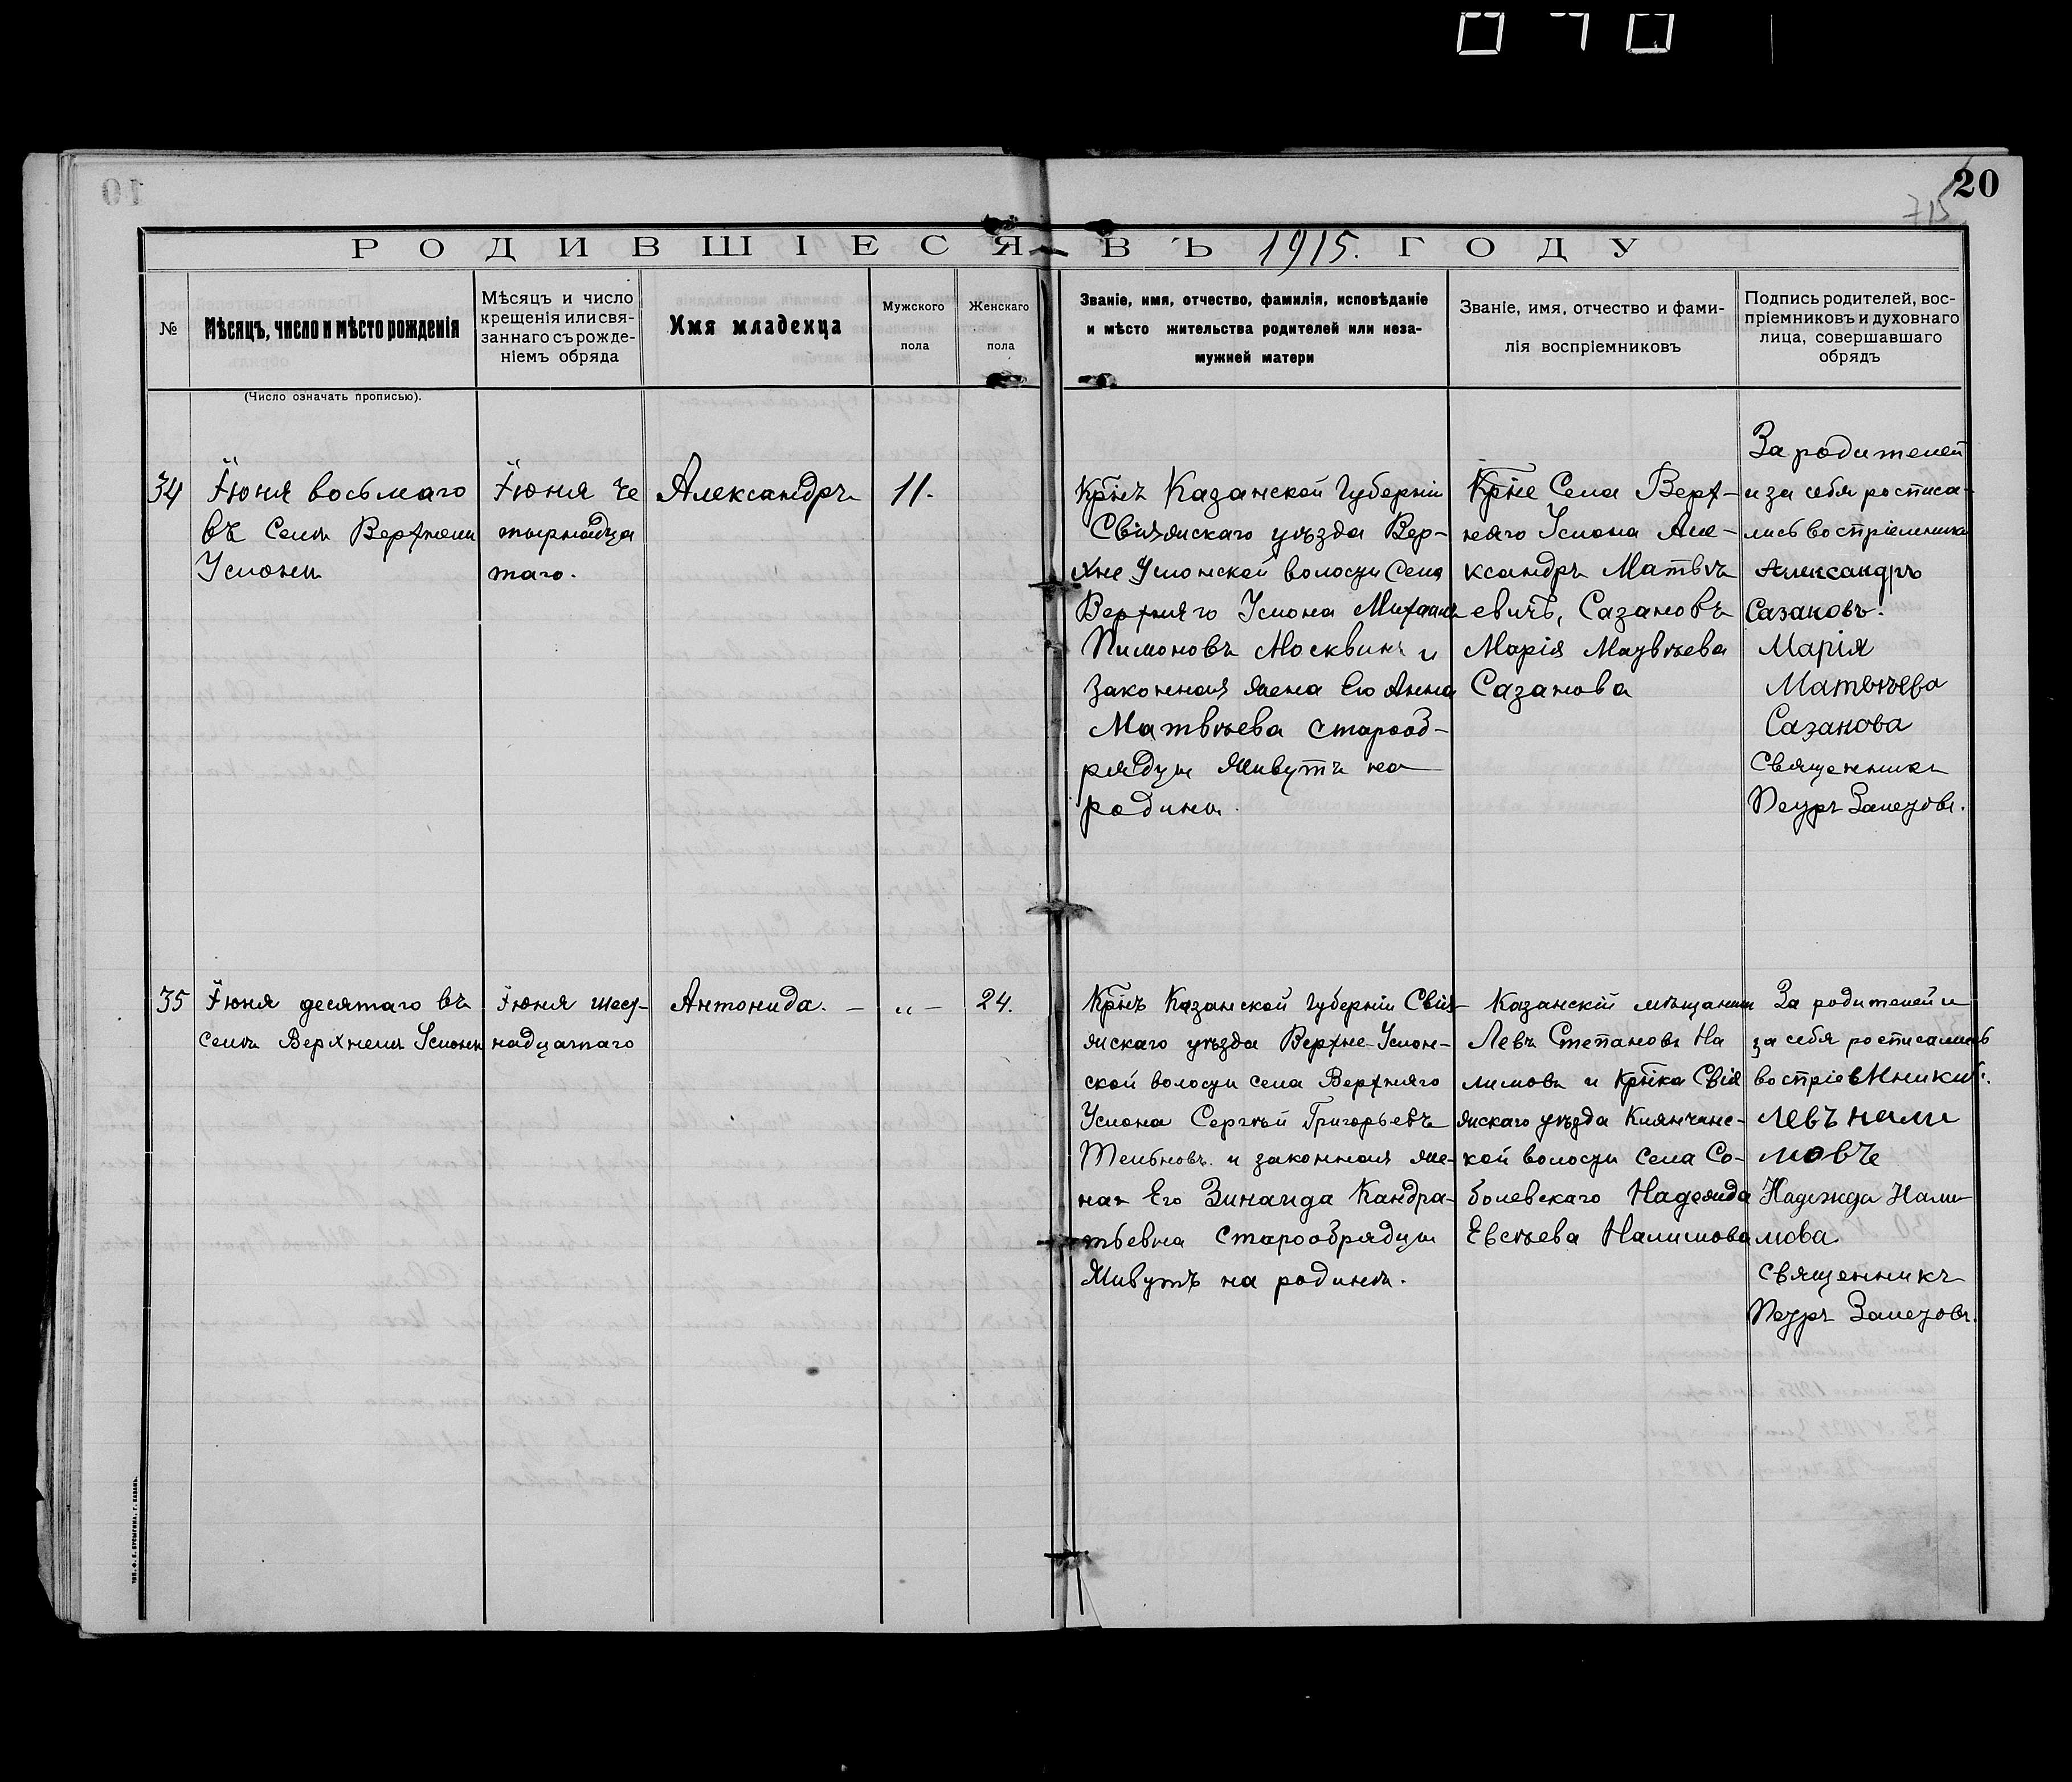 20
715
РОДИВШІЕСЯ ВЪ 1915. ГОДУ
№
Мѣсяцъ, число и мѣсто рожденія
Мѣсяцъ и число
крещенія или свя-
заннаго съ рожде-
ніемъ обряда
Имя младенца
Мужского
пола
Женскаго
пола
Званіе, имя, отчество, фамилія, исповѣданіе
и мѣсто жительства родителей или неза-
мужней матери
Званіе, имя, отчество и фами-
лія воспріемниковъ
Подпись родителей, вос-
пріемниковъ и духовнаго
лица, совершавшаго
обрядъ
(Число означать прописью).
34
Іюня восьмаго
въ Селѣ Верхнем
Услонѣ
Іюня че
тырнадца
таго.
Александръ
11.
Крнъ Казанской Губерніи
Свіяжскаго уѣзда Вер-
хне Услонской волости Села
Верхняго Услона Михаилъ
Пимоновъ Москвинъ и
законная жена Его Анна
Матвѣева старооб-
рядцы живутъ на
родинѣ.
Крне Села Верх-
няго Услона Але-
ксандръ Матвѣ
евичъ, Сазановъ
Марія Матвѣева
Сазанова
За родителей
и за себя росписа-
лись воспріемники
Александръ
Сазановъ.
Марія
Матвѣева
Сазанова
Священникъ
Петръ Залетовъ.
35
Іюня десятаго въ
селѣ Верхнемъ Услонѣ
Іюня шест-
надцатаго
Антонида. — „ —
24.
Крнъ Казанской Губерніи Свія-
жскаго уѣзда Верхне-Услон-
ской волости села Верхняго
Услона Сергѣй Григорьевъ
и законная же-
на Его Зинаида Кандра-
тьевна Старообрядцы
Живутъ на родинѣ.
Казанскій мѣщанинъ
Левъ Степановъ На
лимовъ и Крнка Свія
жскаго уѣзда
кой волости Села Со-
болевскаго Надежда
Евсѣева Налимова
За родителей и
за себя росписались
воспріемники:
Левъ Нали
мовъ
Надежда Нали
мова
Священникъ
Петръ Залетовъ.